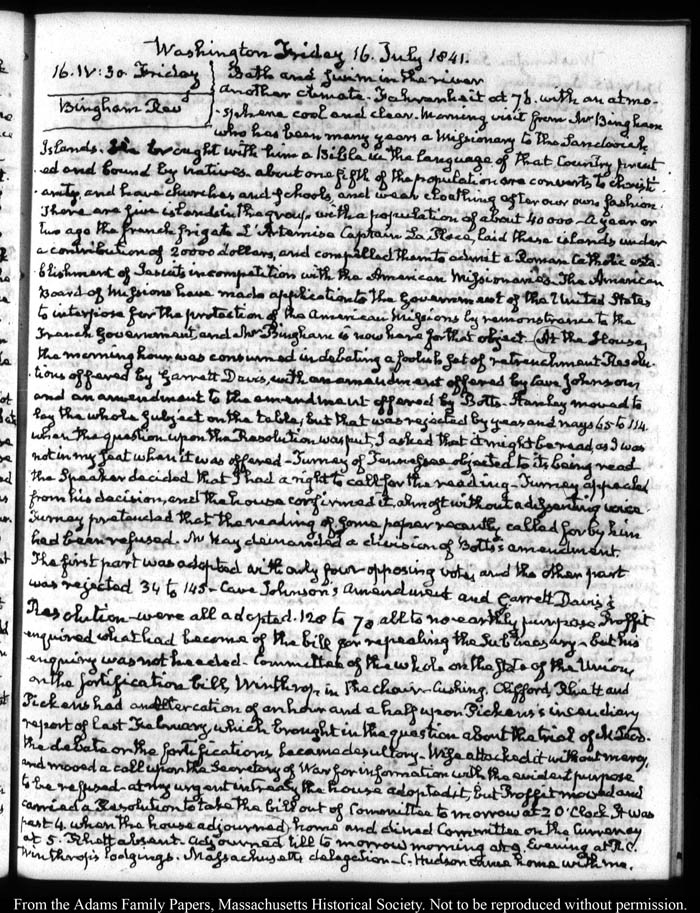 Washington Friday 16. July 1841.
16. IV:30 Friday
Bingham Rev^d
Bath and swim in the river
another climate. Fahrenheit at 76. with an atmo-
-sphere cool and clear. Morning visit from Mr Bingham
who has been many years a Missionary to the Sandwich
Islands. He brought with him a Bible in the language of that Country print
-ed and bound by natives. about one fifth of the population are converts to christi-
-anity, and have churches and schools, and wear cloathing after our own fashion.
There are five islands in the group with a population of about 40000 - A year or
two ago the french frigate L'Artemise Captain La Place, laid these islands under
a contribution of 20000 dollars, and compelled them to admit a Roman Catholic esta-
blishment of Jesuits in competition with the American Missionaries. The American
Board of Missions have made application to the Government of the United States
to interpose for the protection of the American Missions by remonstrance to the
French Government and Mr Bingham is now here for that object - At the House,
the morning hour was consumed in debating a foolish set of retrenchment Resolu-
-tions offered by Garrett Davis, with an amendment offered by Cave Johnson
and an amendment to the amendment offered by Botts. Stanley moved to
lay the whole subject on the table, but that was rejected by yeas and nays 65 to 114.
when the question upon the Resolution was put, I asked that it might be read as I was
not in my seat when it was offered - Turney of Tennessee objected to its being read
the Speaker decided that I had a right to call for the reading - Turney appealed
from his decision, and the house confirmed it, almost without a dissenting voice.
Turney pretended that the reading of some paper recently called for by him
had been refused. McKay demanded a division of Botts's amendment.
The first part was adopted with only four opposing votes and the other part
was rejected 34 to 145 - Cave Johnson's Amendment and Garrett Davis's
Resolution were all adopted. 120 to 70 all to no earthly purpose Proffit
enquired what had become of the bill for repealing the Sub treasury - but his
enquiry was not heeded - Committee of the whole on the state of the Union,
on the fortification bill, Winthrop in the chair - Cushing, Clifford, Rhett and
Pickens had an altercation of an hour and a half upon Pickens's incendiary
report of last February, which brought in the question about the trial of McLeod.
the debate on the fortifications became desultory - Wise attacked it without mercy,
and moved a call upon the Secretary of War for information with the evident purpose
to be refused - at my urgent intreaty the house adopted it, but Proffit moved and
carried a Resolution to take the bill out of Committee to morrow at 2 O'Clock. It was
past 4. when the house adjourned, home and dined Committee on the Currency
at 5. Rhett absent. adjourned till to morrow morning at 9. Evening at R.C.
Winthrop's lodgings. Massachusetts delegation - C. Hudson came home with me.
From the Adams Family Papers, Massachusetts Historical Society. Not to be reproduced without permission.